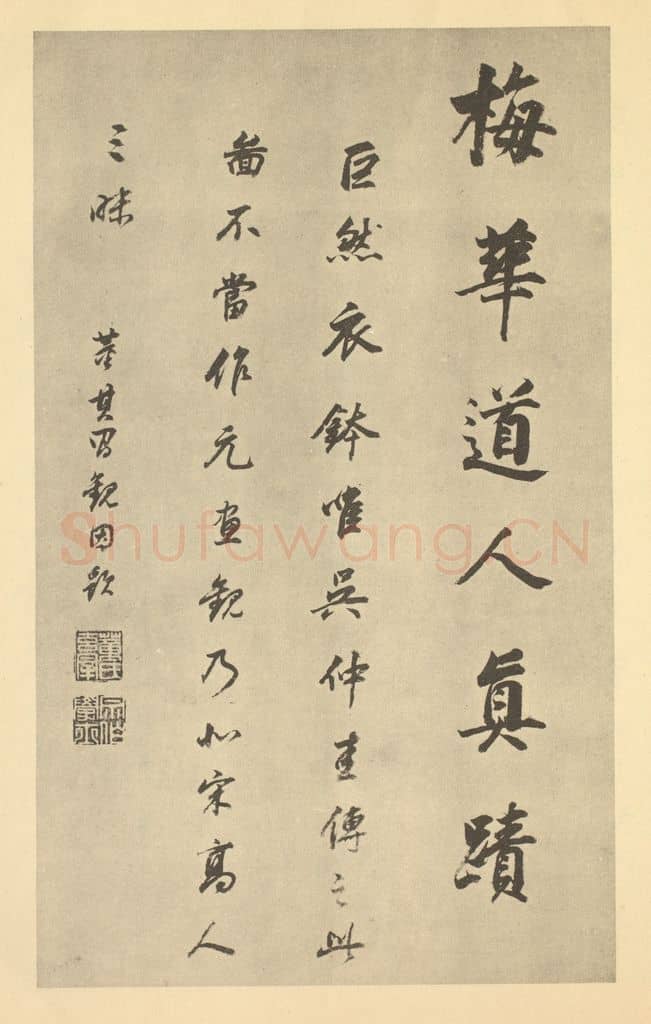 梅華道人真蹟
巨然衣鉢唯吳仲圭傳之此
啚不當作元畫觀乃北宋高人
三昧
董其昌觀因題
Shufawang.CN